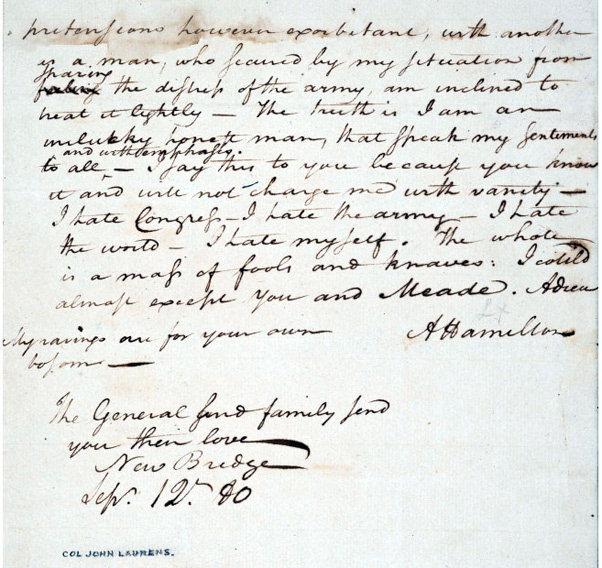 pretensions however exorbitant, with another
as a man, who secured by my situation from
sharing
the distress of the army, am inclined to
treat it lightly — The truth is I am an
unlucky honest man, that speak my sentiments
and with emphasis.
to all, — I say this to you because you know
it and will not charge me with vanity —
I hate Congress — I hate the army — I hate
the world — I hate myself. The whole
is a mass of fools and knaves: I could
almost except you and Meade. Adieu
AHamilton
My ravings are for your own
bosom —
The General and family send
you their love
New Bridge
Sepr. 12. 80
COL JOHN LAURENS.